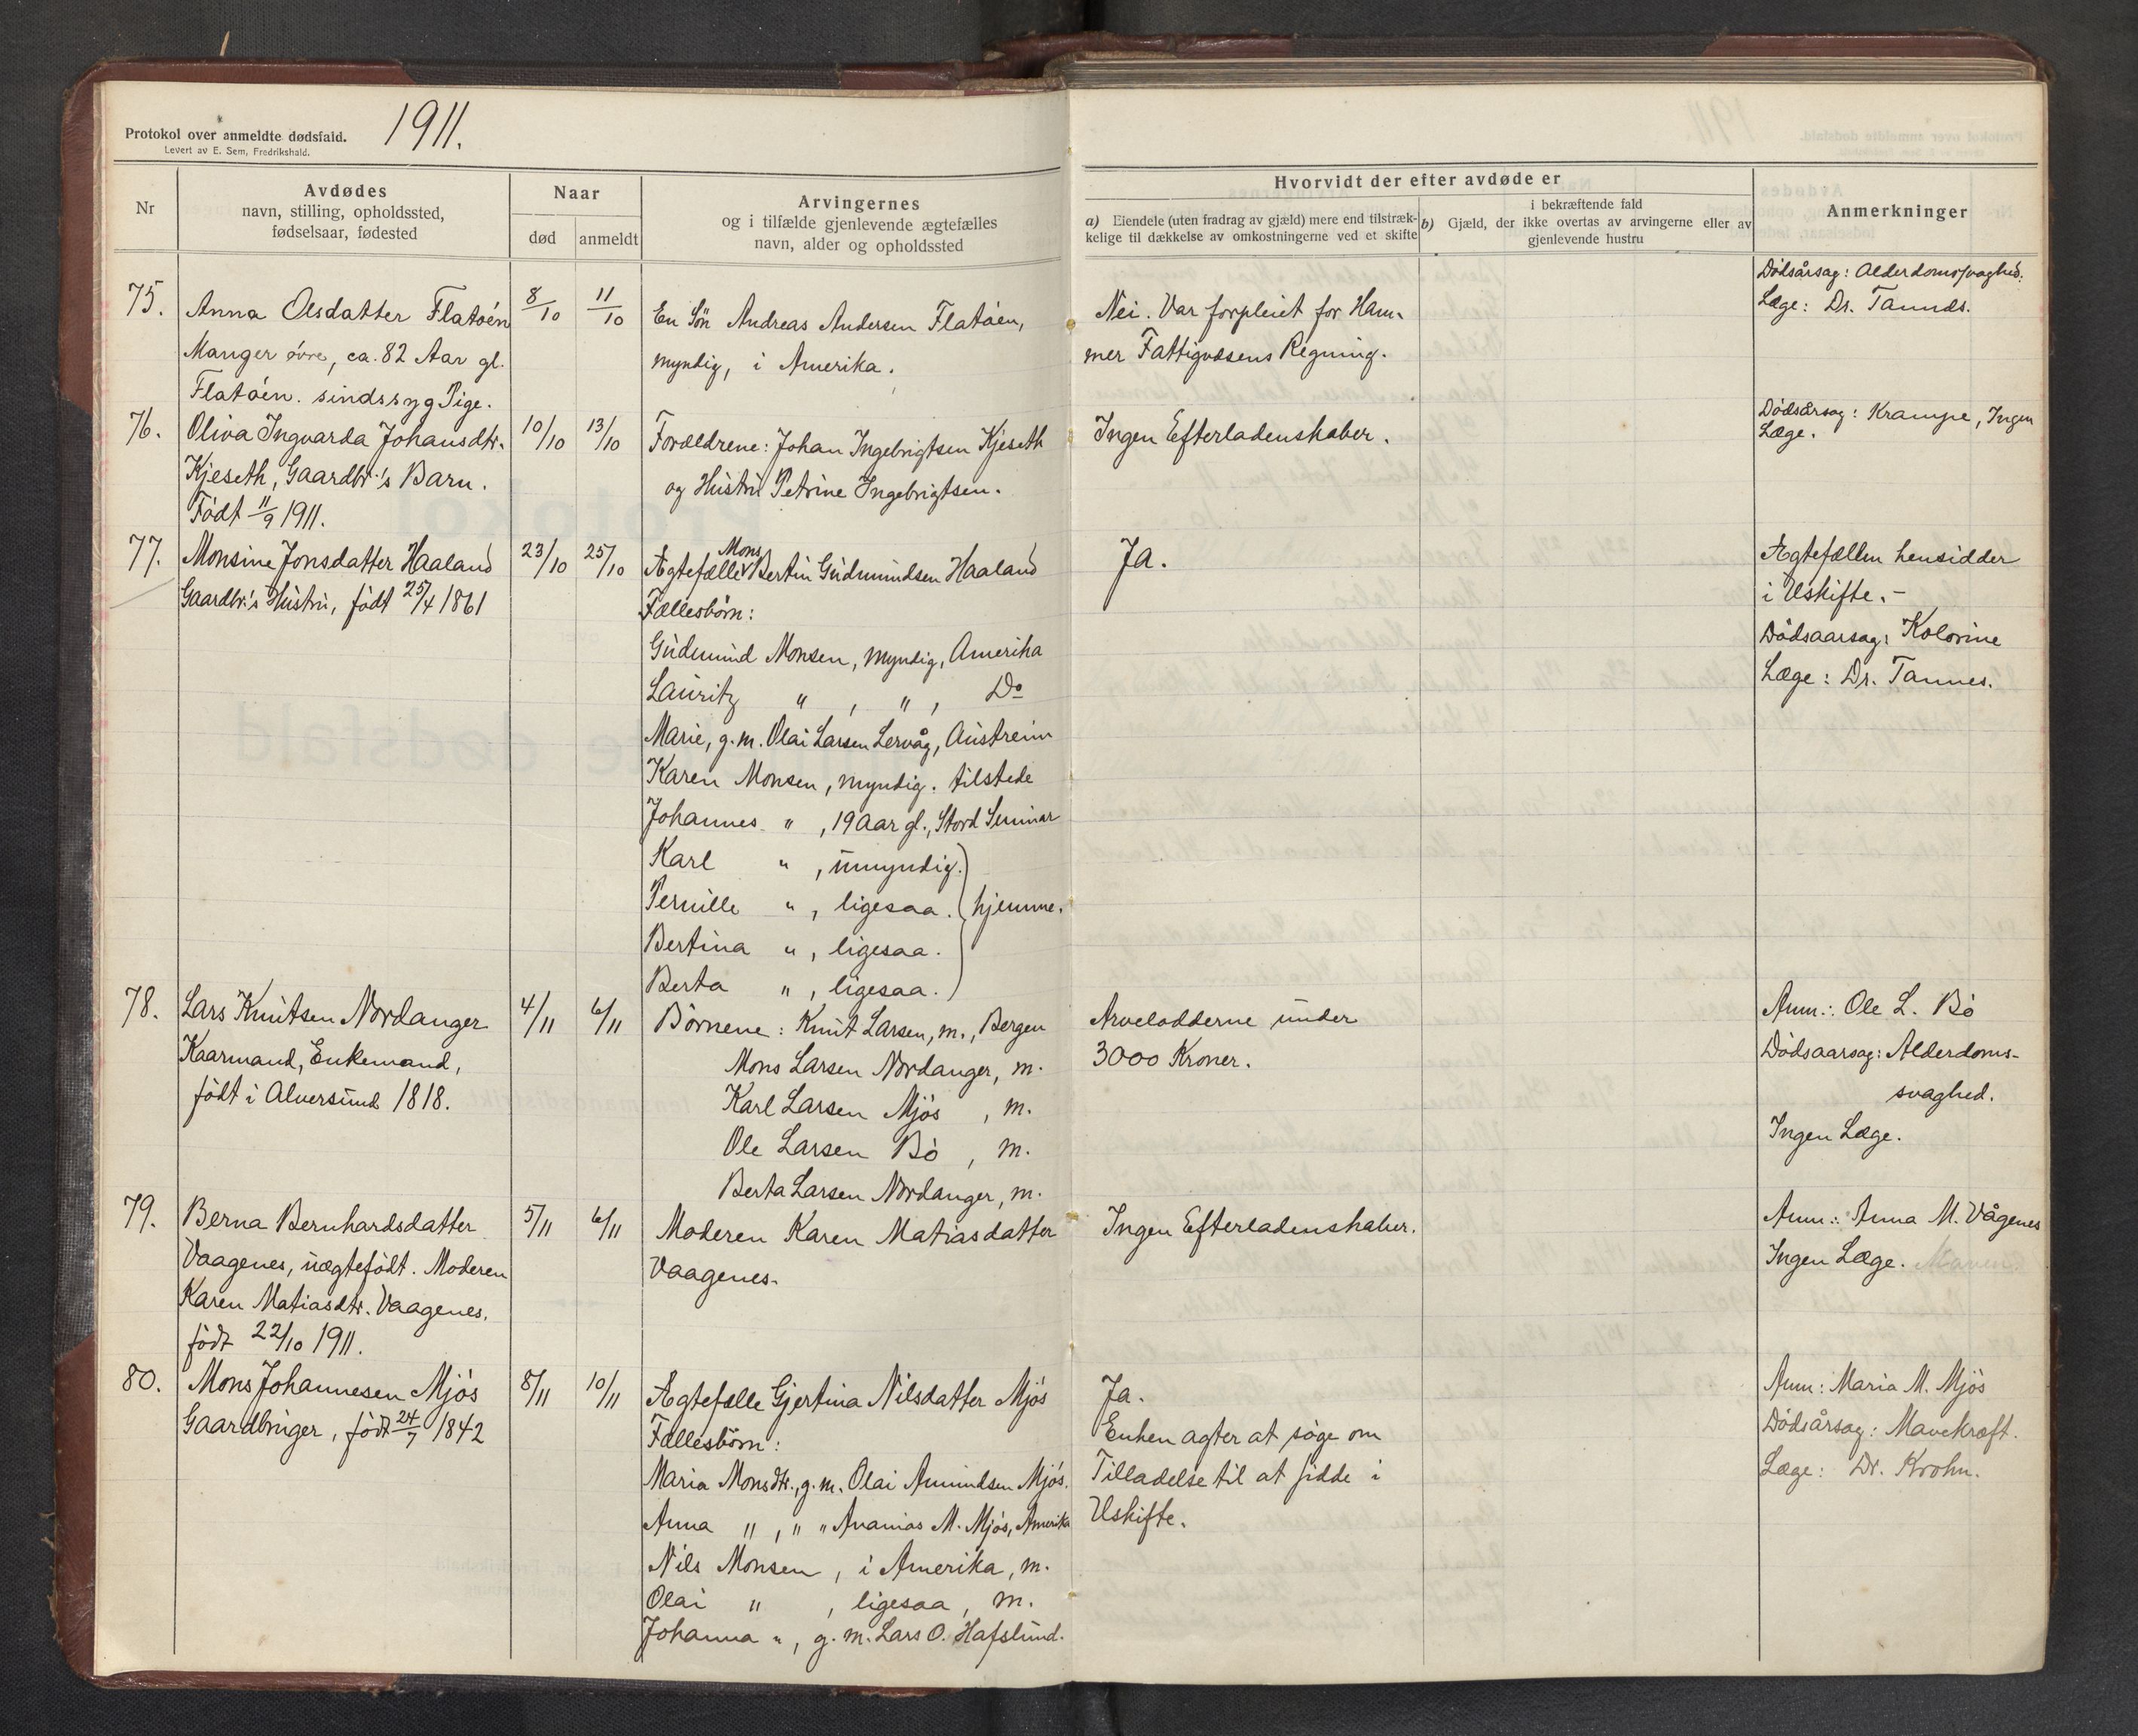 Protokol over anmeldte dødsfald.
Levert av E. Sem, Fredrikshald.
1911.
Nr
Avdødes
navn, stilling, opholdssted,
fødselsaar, fødested
Naar
død
anmeldt
Arvingernes
og i tilfælde gjenlevende ægtefælles
navn, alder og opholdssted
Hvorvidt der efter avdøde er
a) Eiendele (uten fradrag av gjæld) mere end tilstræk-
kelige til dækkelse av omkostningerne ved et skifte
i bekræftende fald
b) Gjæld, der ikke overtas av arvingerne eller av
gjenlevende hustru
Anmerkninger
75.
Anna Olsdatter Flatøen
Manger øvre, ca. 82 Aar gl.
Flatøen. sindssyg Pige.
8/10
11/10
En Søn Andreas Andersen Flatøen,
myndig, i Amerika.
Nei. Var forpleiet for Ham-
mer Fattigvæsens Regning.
Dødsårsag: Alderdomssvaghed.
Læge: Dr. Tannes.
76.
Oliva Ingvarda Johansdtr.
Kjeseth, Gaardbr.'s Barn.
Født 11/9 1911.
10/10
13/10
Forældrene: Johan Ingebrigtsen Kjeseth
og Hustru Petrine Ingebrigtsen.
Ingen Efterladenskaber.
Dødsårsag: Krampe, Ingen
Læge.
77.
Monsine Jonsdatter Haaland
Gaardbr.'s Hustru, født 25/4 1861
23/10
25/10
Mons
Ægtefælle Bertin Gudmundsen Haaland
Fællesbørn:
Gudmund Monsen, myndig, Amerika
Lauritz " , " , Do
Marie, g. m. Olai Larsen Lervåg, Austreim
Karen Monsen, myndig. tilstede
Johannes " , 19 Aar gl., Stord Seminar
Karl " , umyndig.
Pernille " , ligesaa. hjemme.
Bertina " , ligesaa.
Berta " , ligesaa.
Ja.
Ægtefællen hensidder
i Uskifte.-
Dødsaarsag: Kolorine
Læge: Dr. Tannes.
78.
Lars Knutsen Nordanger
Kaarmand, Enkemand,
født i Alversund 1818.
4/11
6/11
Børnene: Knut Larsen, m., Bergen
Mons Larsen Nordanger, m.
Karl Larsen Mjøs , m.
Ole Larsen Bø , m.
Berta Larsen Nordanger, m.
Arvelodderne under
3000 Kroner.
Anm.: Ole L. Bø
Dødsaarsag: Alderdoms-
svaghed.
Ingen Læge.
79.
Berna Bernhardsdatter
Vaagenes, uægtefødt. Moderen
Karen Matiasdtr. Vaagenes.
født 22/10 1911.
5/11
6/11
Moderen Karen Matiasdatter
Vaagenes.
Ingen Efterladenskaber.
Anm.: Anna M. Vågenes
Ingen Læge.
80.
Mons Johannesen Mjøs
Gaardbruger, født 24/7 1842
8/11
10/11
Ægtefælle Gjertina Nilsdatter Mjøs
Fællesbørn:
Maria Monsdtr., g. m. Olai Amundsen Mjøs.
Anna " , " " Ananias M. Mjøs, Amerika
Nils Monsen, i Amerika, m.
Olai " , ligesaa, m.
Johanna " , g. m. Lars O. Hafslund.
Ja.
Enken agter at søge om
Tilladelse til at sidde i
Uskifte.
Anm: Maria M. Mjøs
Dødsårsag: Mavekræft.
Læge: Dr. Krohn.